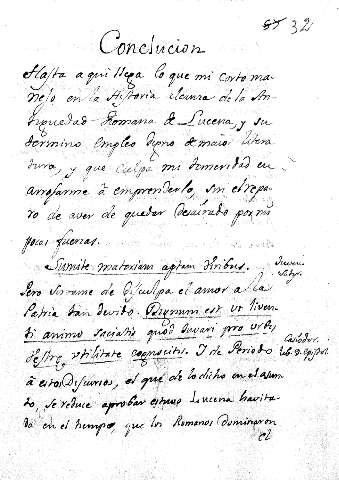 32
Conclucion
Hasta aqui llega lo que mi corto ma-
nejo en la Historia alcanza de la An-
tiguedad Romana de Lucena, y su
termino, empleo digno de maior litera-
tura, y que culpa mi temeridad en
arrojarme â emprenderlo, sin el repa-
ro de aver de quedar desairado por mis
pocas fuerzas.
Sumite materiam aptam viribus.
Pero sirvame de disculpa el amor a la
Patria tan devido. Dignum est ut liven-
ti animo faciatis quod iuvari pro urbis
vestre utilitate cognoscitis. Casiodor.
lib. Epistol.
I de Periodo
â estos Discursos, el que de lo dicho en el asun-
to, se reduce aprobar estuvo Lucena havita-
da en el tiempo, que los Romanos dominaron
el